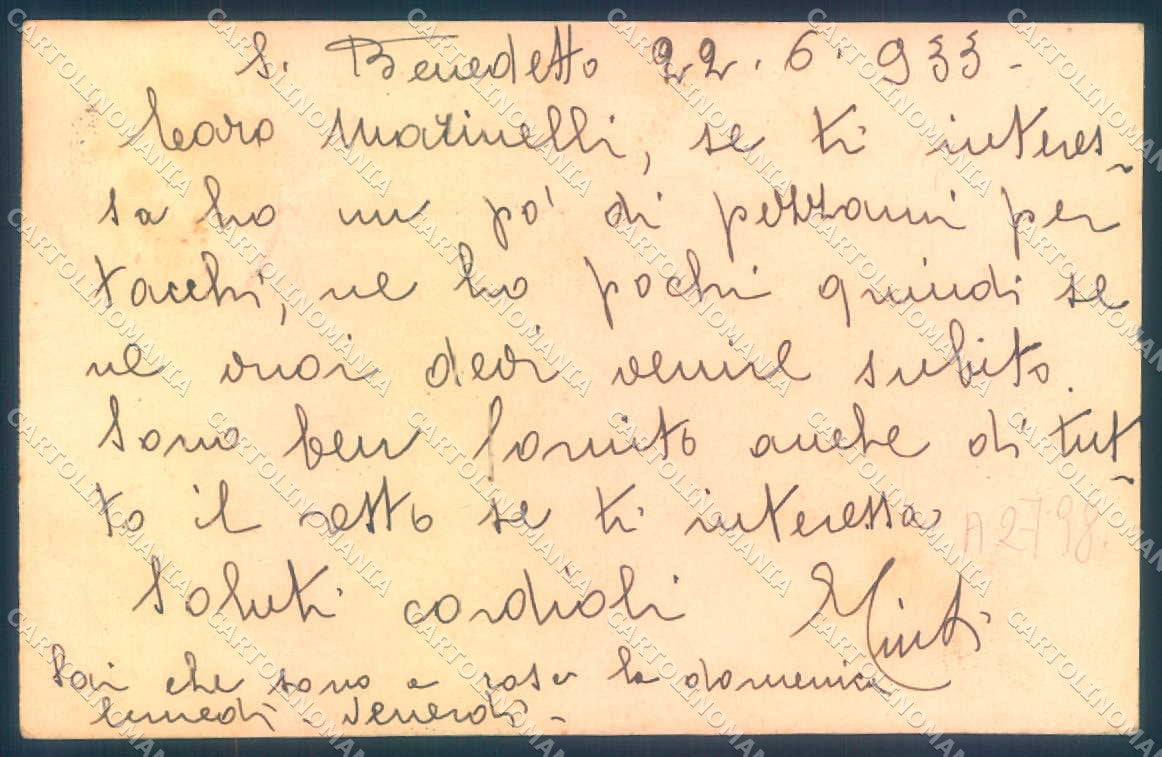 S. Benedetto 22.6.933-
Caro Matinelli, se ti interes-
sa ho un po' di pezzami per
tacchi, ne ho pochi quindi se
ne vuoi devi venire subito.
Sono ben fornito anche di tut-
to il resto se ti interessa
A2798
Saluti cordiali
Sai che sono a casa la domenica
lunedì - Venerdì -
CARTOLINOMANIA